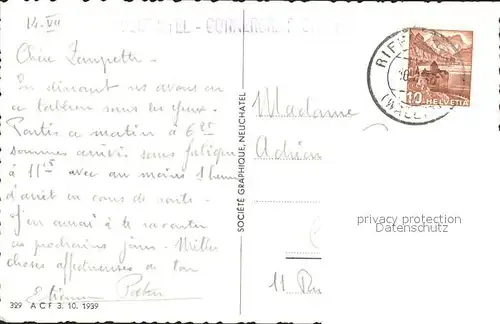 14. VII
Chère
En dînant nous avons ce
ce tableau sous les yeux.
Partis ce matin à 6 25
sommes arrivés sans fatigue
à 11 15 avec au moins 1 heure
d'arrêt en cours de route.
J'en aurai à te raconter
ces prochains jours. Mille
choses affectueuses de ton
Etienne
329 A C F 3. 10. 1939
SOCIÉTÉ GRAPHIQUE, NEUCHATEL
RIFF
10
HELVETIA
Madame
Adrien
privacy protection
Datenschutz
11 Ru